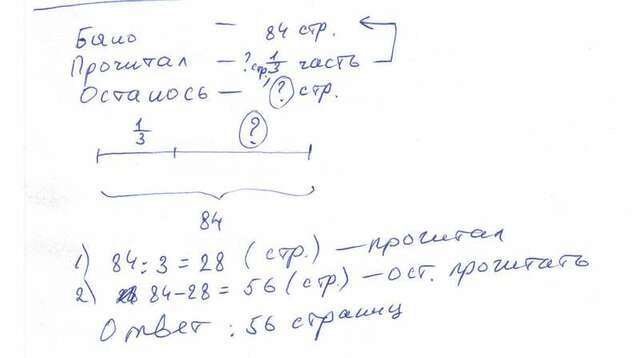 Было — 84 стр.
Прочитал — ? стр., 1/3 часть
Осталось — ? стр.
1/3 ?
84
1) 84 : 3 = 28 (стр.) — прочитал
2) 84 - 28 = 56 (стр.) — ост. прочитать
Ответ : 56 страниц